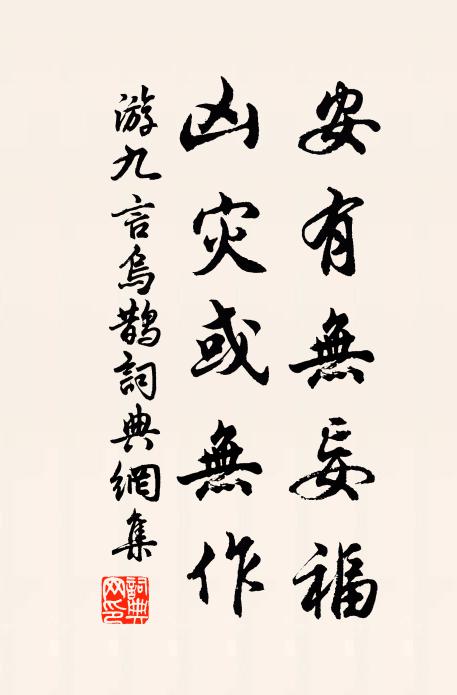 安有無妄福
凶灾或無作
游九言烏鵲詞典網集
詞典网印